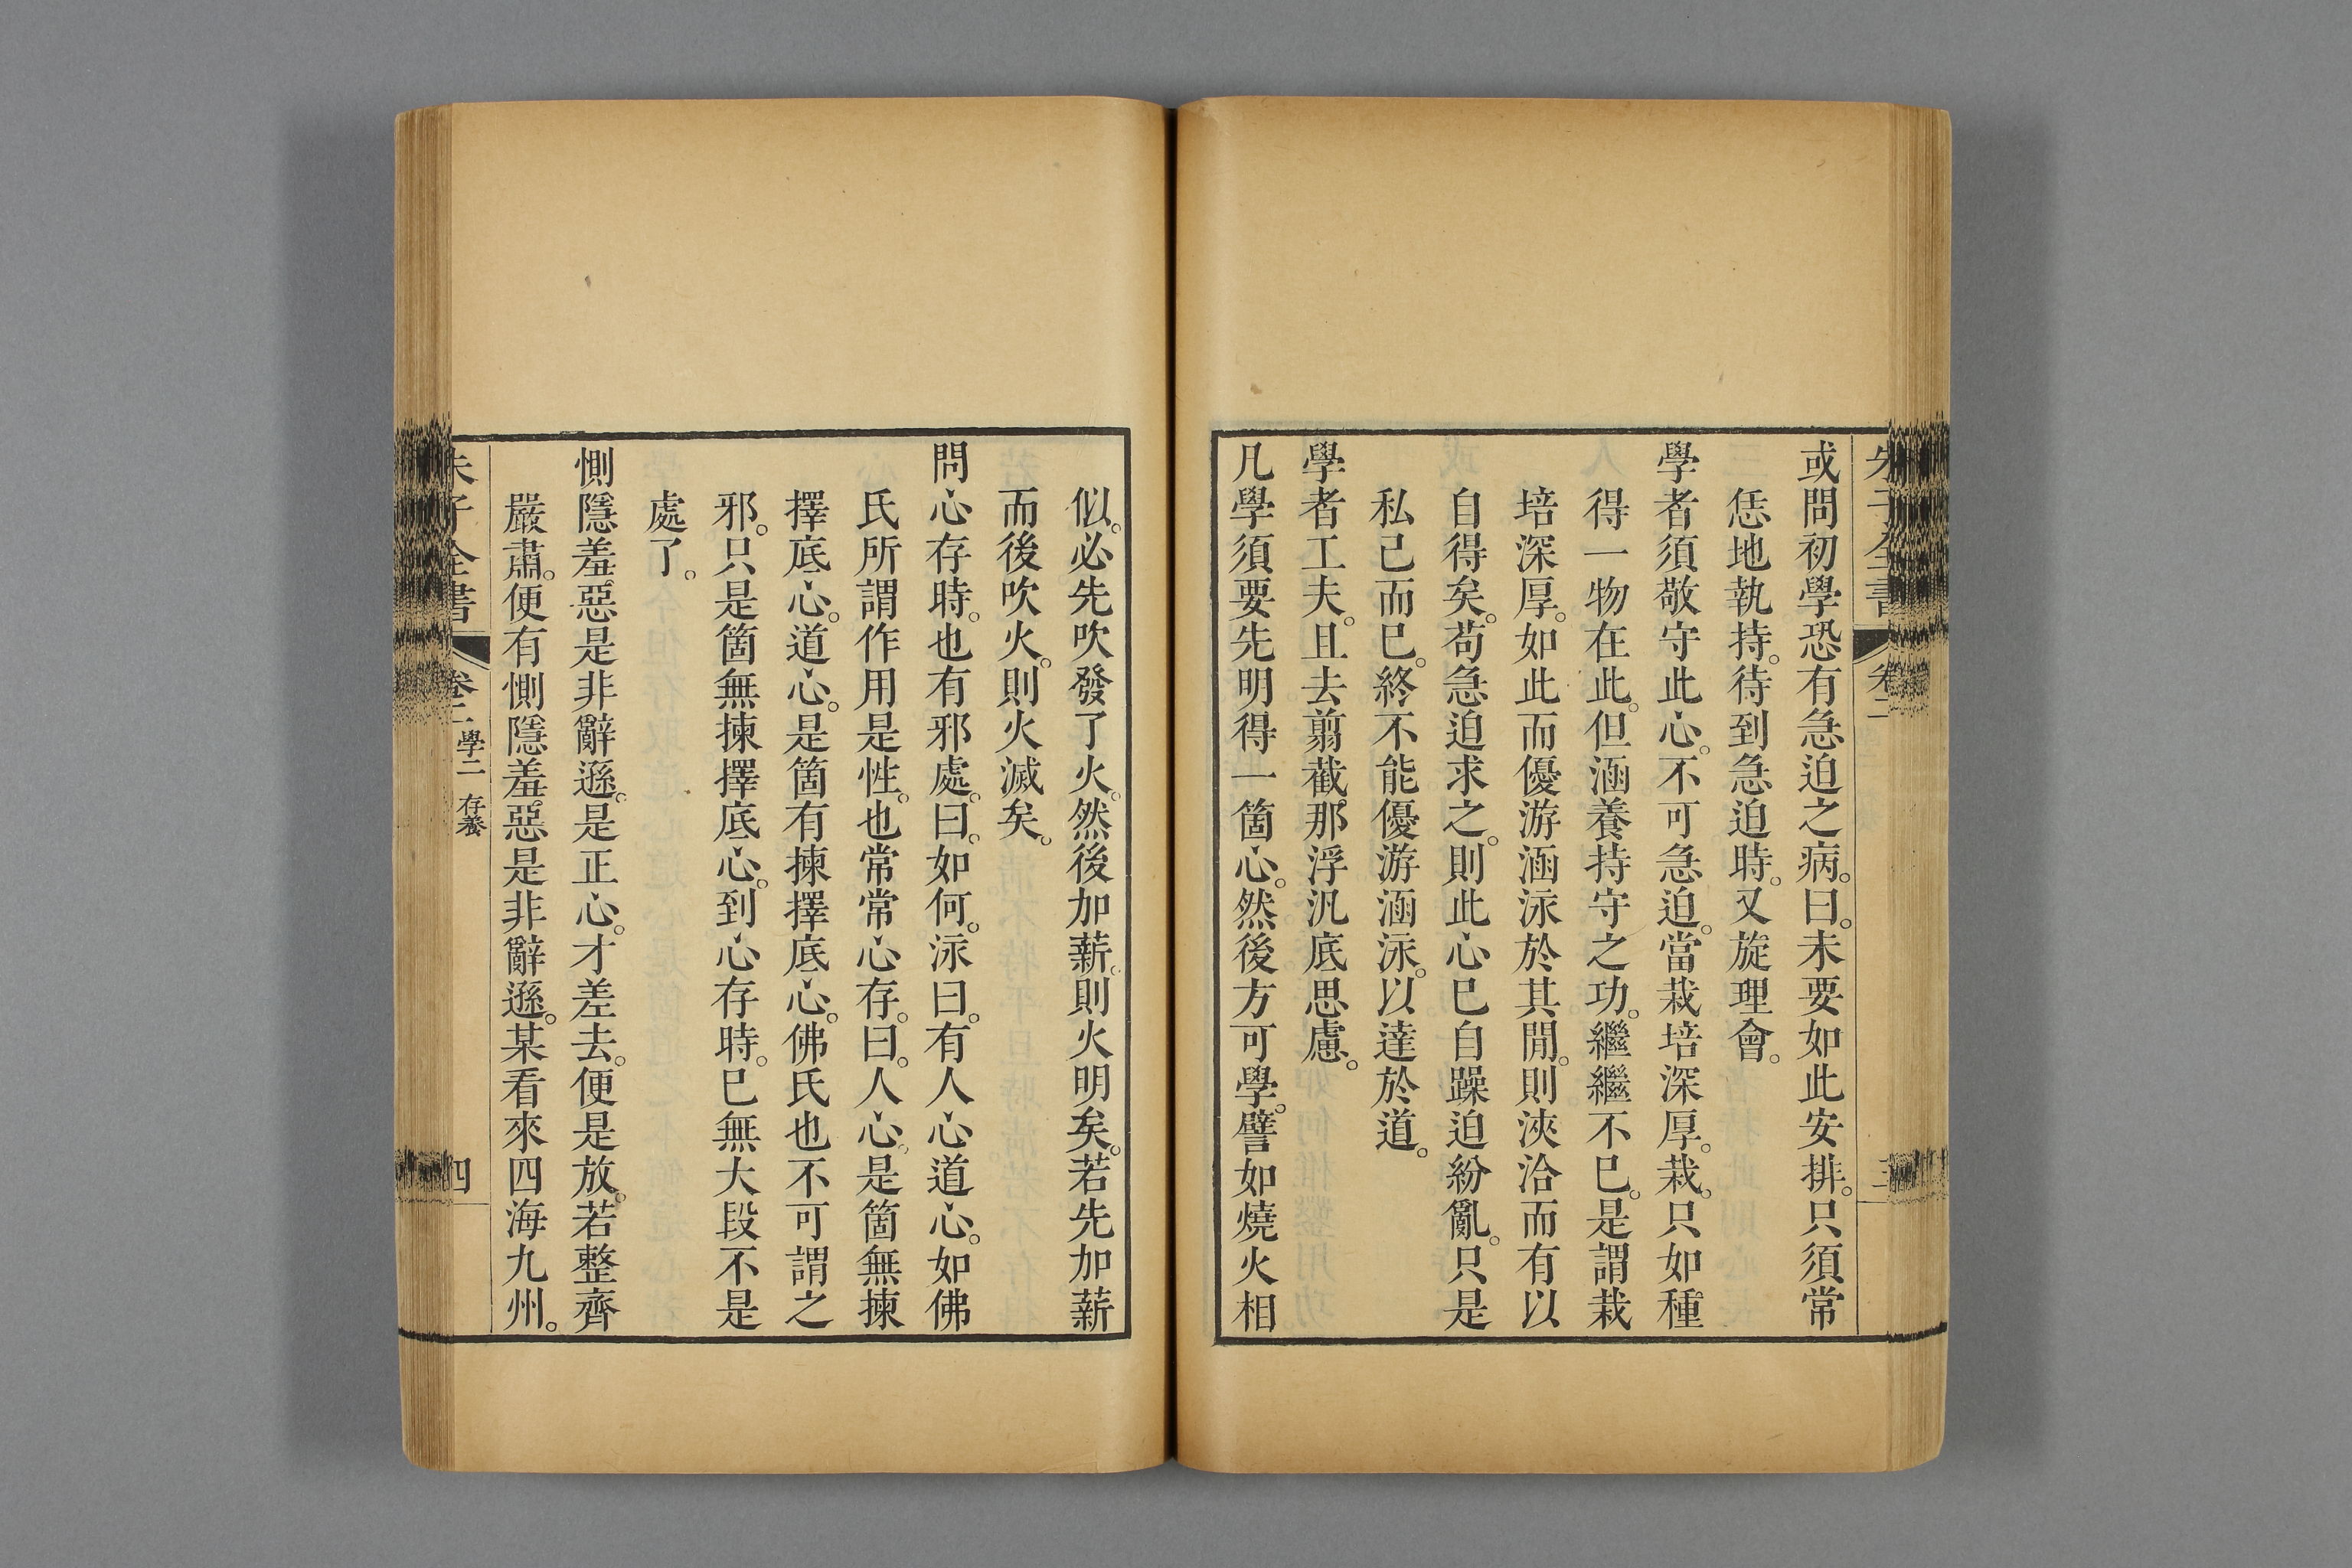 朱子全書 卷二 三
或問初學恐有急迫之病。曰。未要如此安排。只須常
恁地執持。待到急迫時。又旋理會。
學者須敬守此心。不可急迫。當栽培深厚。栽。只如種
得一物在此。但涵養持守之功。繼繼不已。是謂栽
培深厚。如此而優游涵泳於其閒。則浹洽而有以
自得矣。苟急迫求之。則此心已自躁迫紛亂。只是
私己而已。終不能優游涵泳。以達於道。
學者工夫。且去翦截那浮汎底思慮。
凡學須要先明得一箇心。然後方可學。譬如燒火相
似。必先吹發了火。然後加薪。則火明矣。若先加薪
而後吹火。則火滅矣。
問心存時。也有邪處。曰。如何。泳曰。有人心道心。如佛
氏所謂作用是性。也常常心存。曰。人心。是箇無揀
擇底心。道心。是箇有揀擇底心。佛氏也不可謂之
邪。只是箇無揀擇底心。到心存時。已無大段不是
處了。
惻隱羞惡是非辭遜。是正心。才差去。便是放。若整齊
嚴肅。便有惻隱羞惡是非辭遜。某看來四海九州。
朱子全書 卷二 學二 存養 四